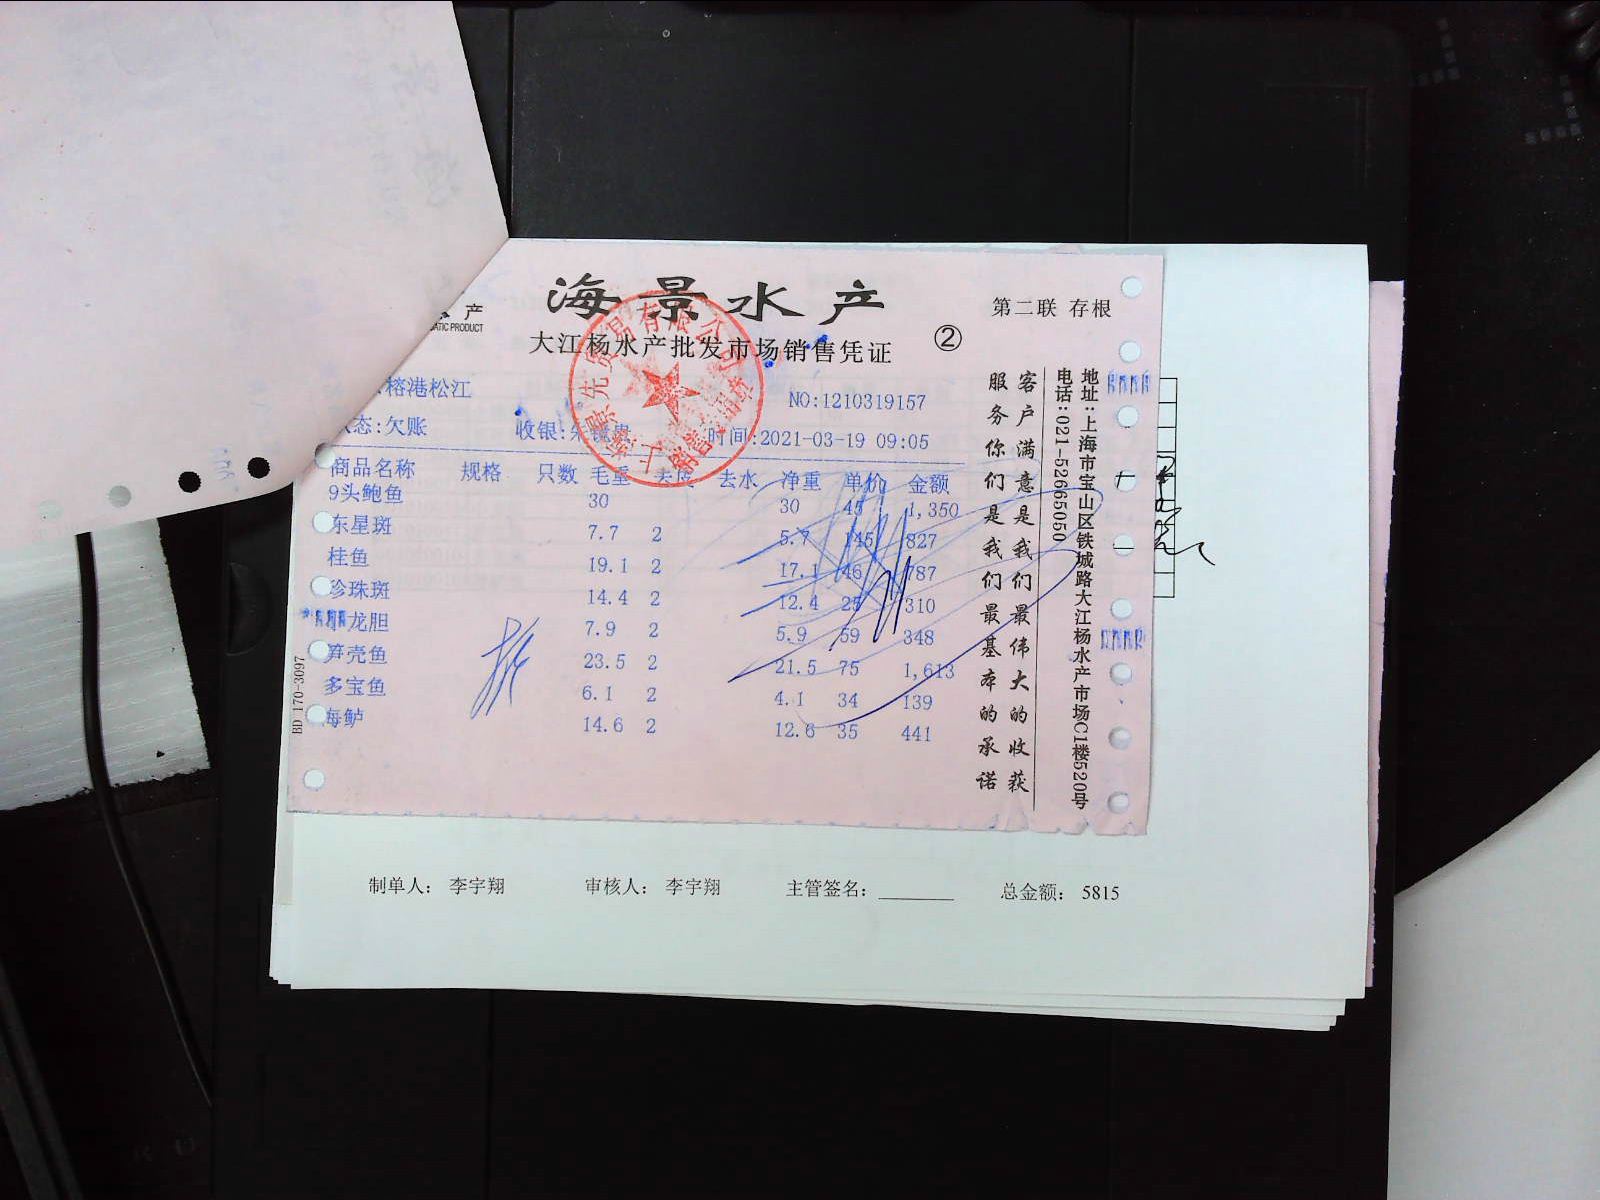 海景水产
第二联 存根
产
ATIC PRODUCT
大江杨水产批发市场销售凭证 ②
榕港松江
NO:1210319157
态:欠账 收银: 时间:2021-03-19 09:05
商品名称 规格 只数 毛重 去皮 去水 净重 单价 金额
9头鲍鱼 30 30 45 1,350
东星斑 7.7 2 5.7 145 827
桂鱼 19.1 2 17.1 46 787
珍珠斑 14.4 2 12.4 25 310
龙胆 7.9 2 5.9 59 348
笋壳鱼 23.5 2 21.5 75 1,613
多宝鱼 6.1 2 4.1 34 139
海鲈 14.6 2 12.6 35 441
客户满意是我们最伟大的收获
服务你们是我们最基本的承诺
地址:上海市宝山区铁城路大江杨水产市场C1楼520号
电话:021-52665050
BD 170-3097
制单人: 李宇翔 审核人: 李宇翔 主管签名: 总金额: 5815